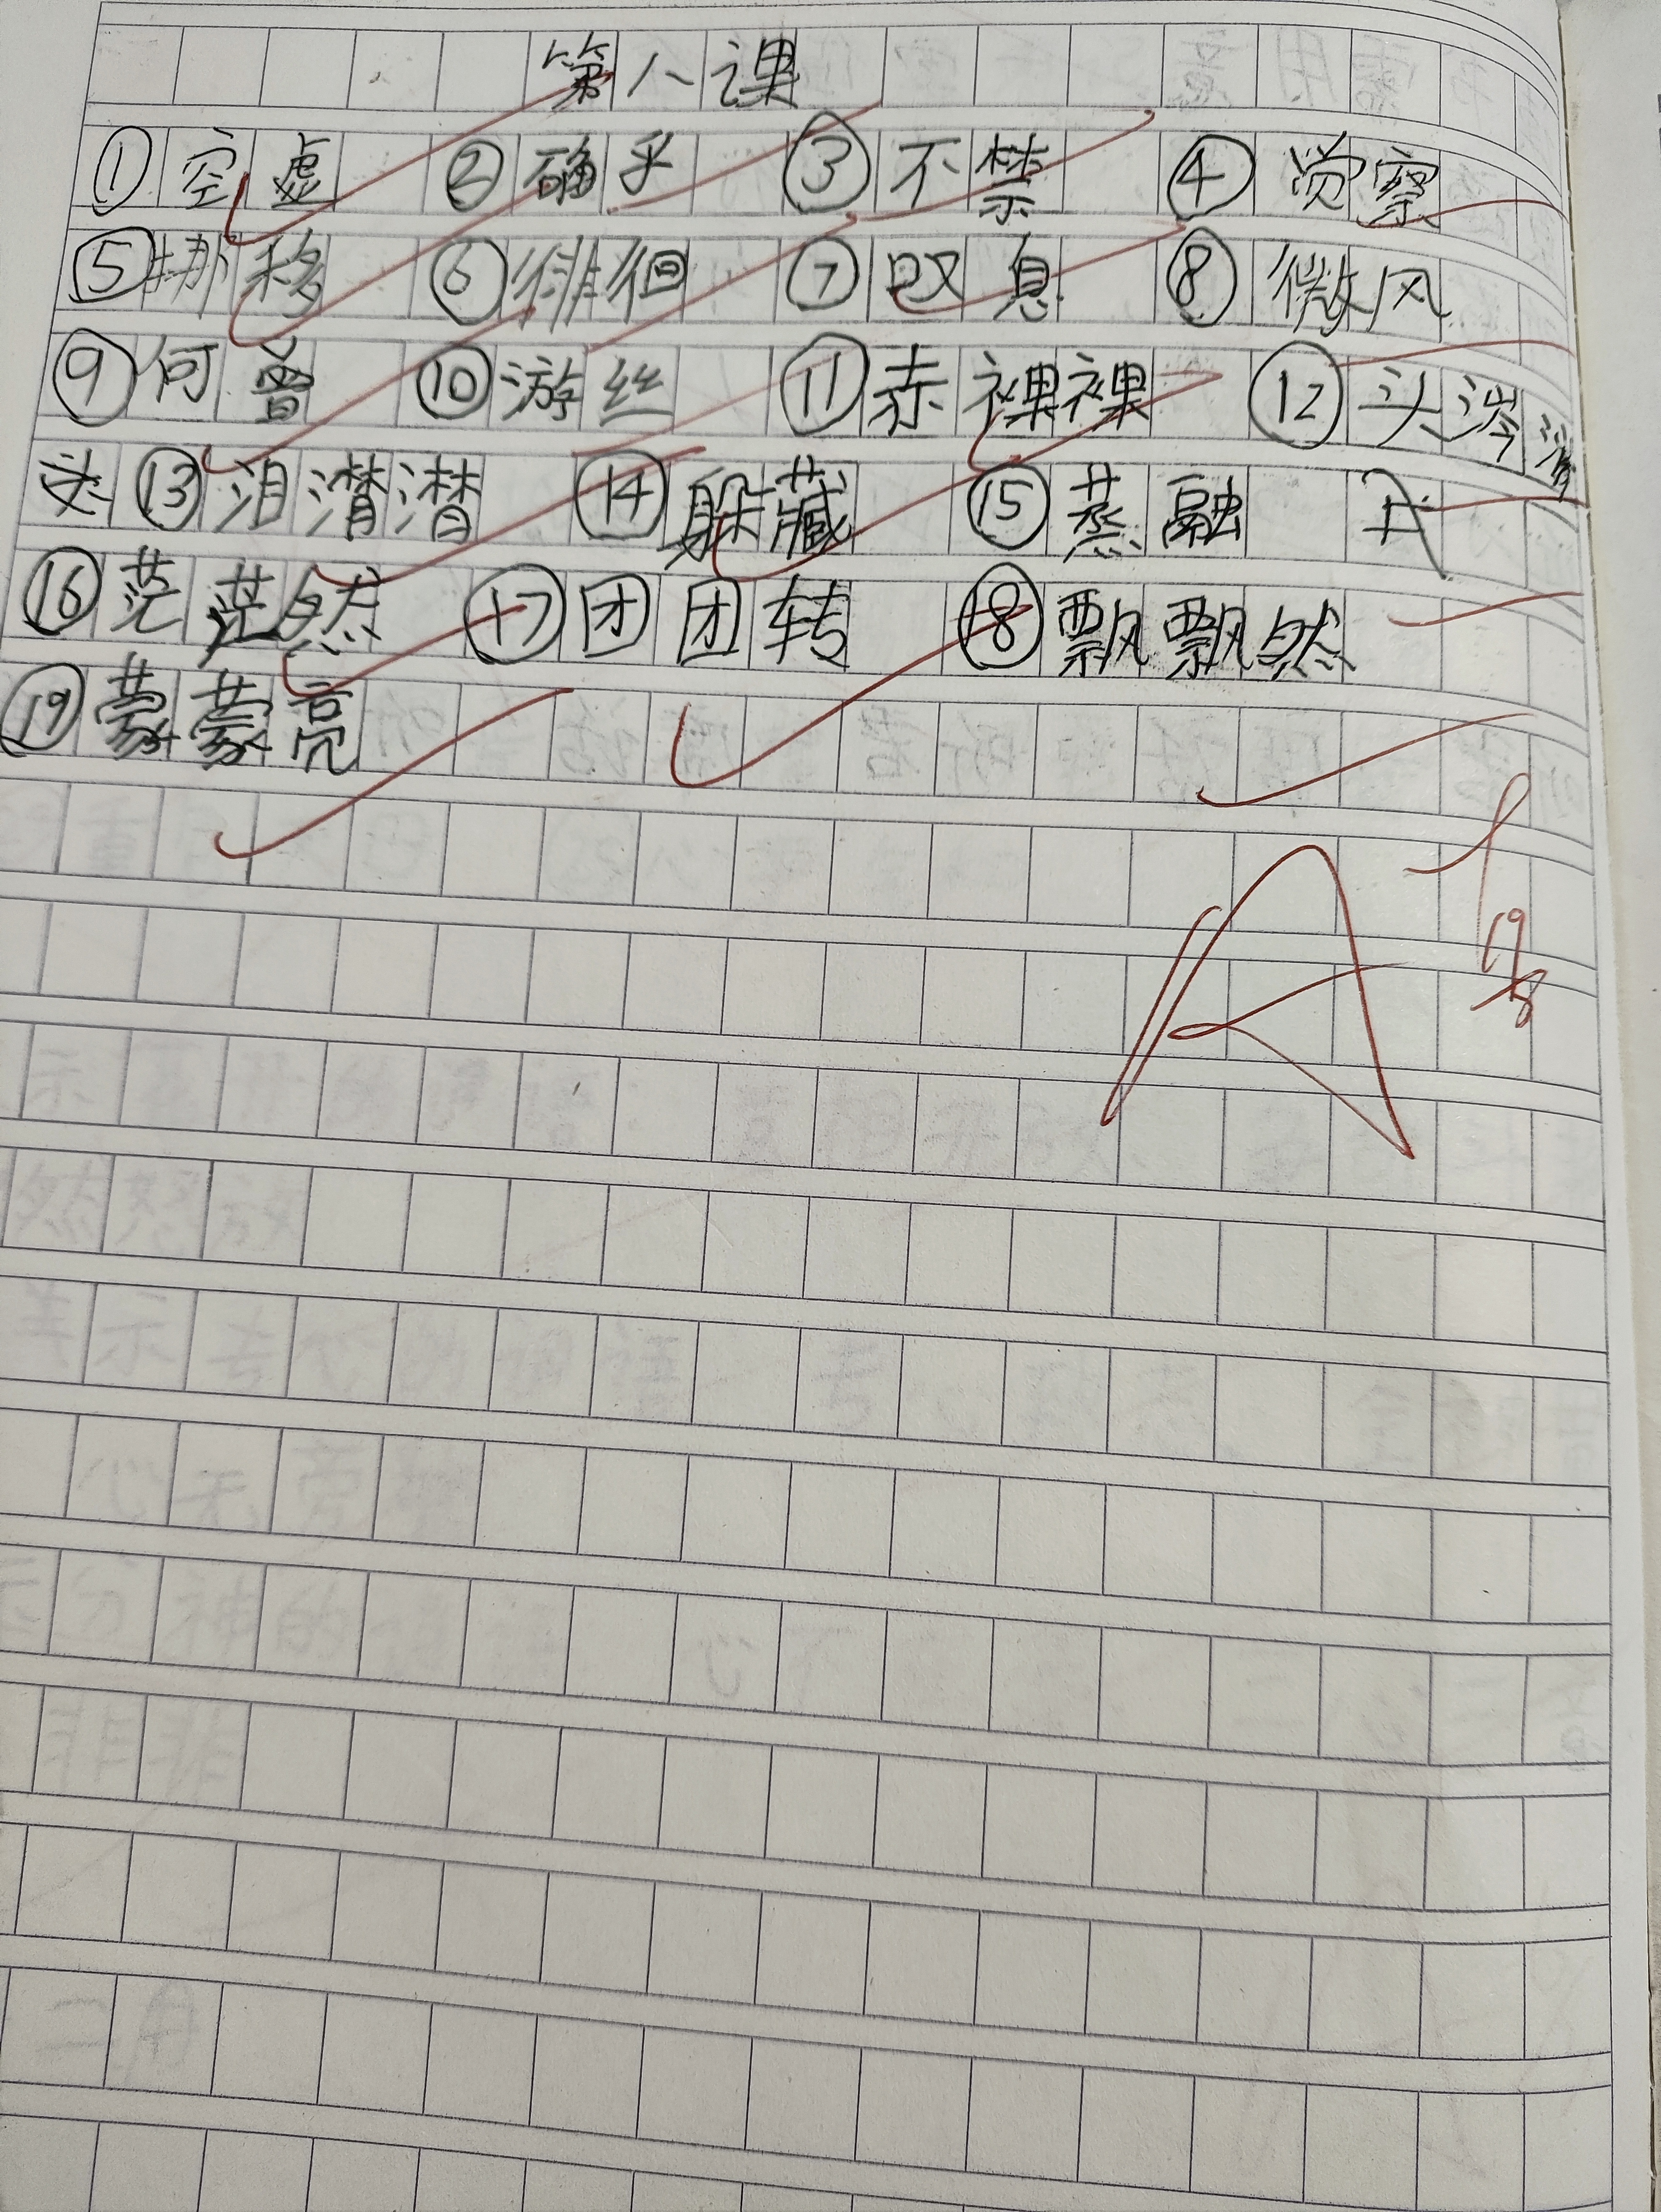 第八课
①空虚 ②确乎 ③不禁 ④觉察
⑤挪移 ⑥徘徊 ⑦叹息 ⑧微风
⑨何曾 ⑩游丝 ⑪赤裸裸 ⑫头涔涔
⑬泪潸潸 ⑭躲藏 ⑮蒸融
⑯茫茫然 ⑰团团转 ⑱飘飘然
⑲蒙蒙亮
A